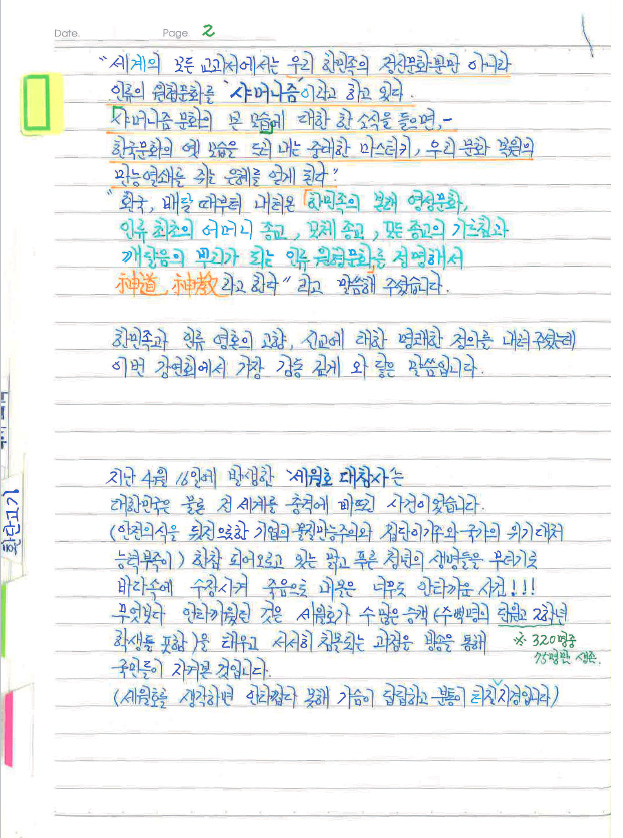 Date.
Page. 2
"세계의 모든 교과서에서는 우리 한민족의 정신문화뿐만 아니라
인류의 원형문화를 '샤머니즘'이라고 하고 있다.
「샤머니즘 문화의 본 모습」에 대한 한 소식을 들으면,-
한국문화의 옛 모습을 드러내는 중대한 마스터키, 우리 문화 복원의
만능열쇠를 쥐는 은혜를 얻게 된다."
"환국, 배달 때부터 내려온 「한민족의 본래 영성문화,
인류 최초의 어머니 종교, 모체 종교, 모든 종교의 가르침과
깨달음의 뿌리가 되는 인류 원형문화」를 정명해서
神道, 神教라고 한다" 라고 말씀해 주셨습니다.
한민족과 인류 영혼의 고향, 신교에 대한 명쾌한 정의를 내려주셨는데
이번 강연회에서 가장 감동 깊게 와 닿은 말씀입니다.
지난 4월 16일에 발생한 '세월호 대참사'는
대한민국은 물론 전 세계를 충격에 빠뜨린 사건이었습니다.
(안전의식을 뒷전으로한 기업의 물질만능주의와 집단이기주의·국가의 위기대처
능력부족이) 한참 피어오르고 있는 맑고 푸른 청년의 생명들을 무더기로
바다속에 수장시켜 죽음으로 내몰은 너무도 안타까운 사건!!!
무엇보다 안타까웠던 것은 세월호가 수많은 승객 (수백명의 단원고 2학년
학생들 포함)을 태우고 서서히 침몰되는 과정을 방송을 통해
※ 320명중
75명만 생존.
국민들이 지켜본 것입니다.
(세월호를 생각하면 안타깝다 못해 가슴이 답답하고 분통이 터질 지경입니다)
환단고기